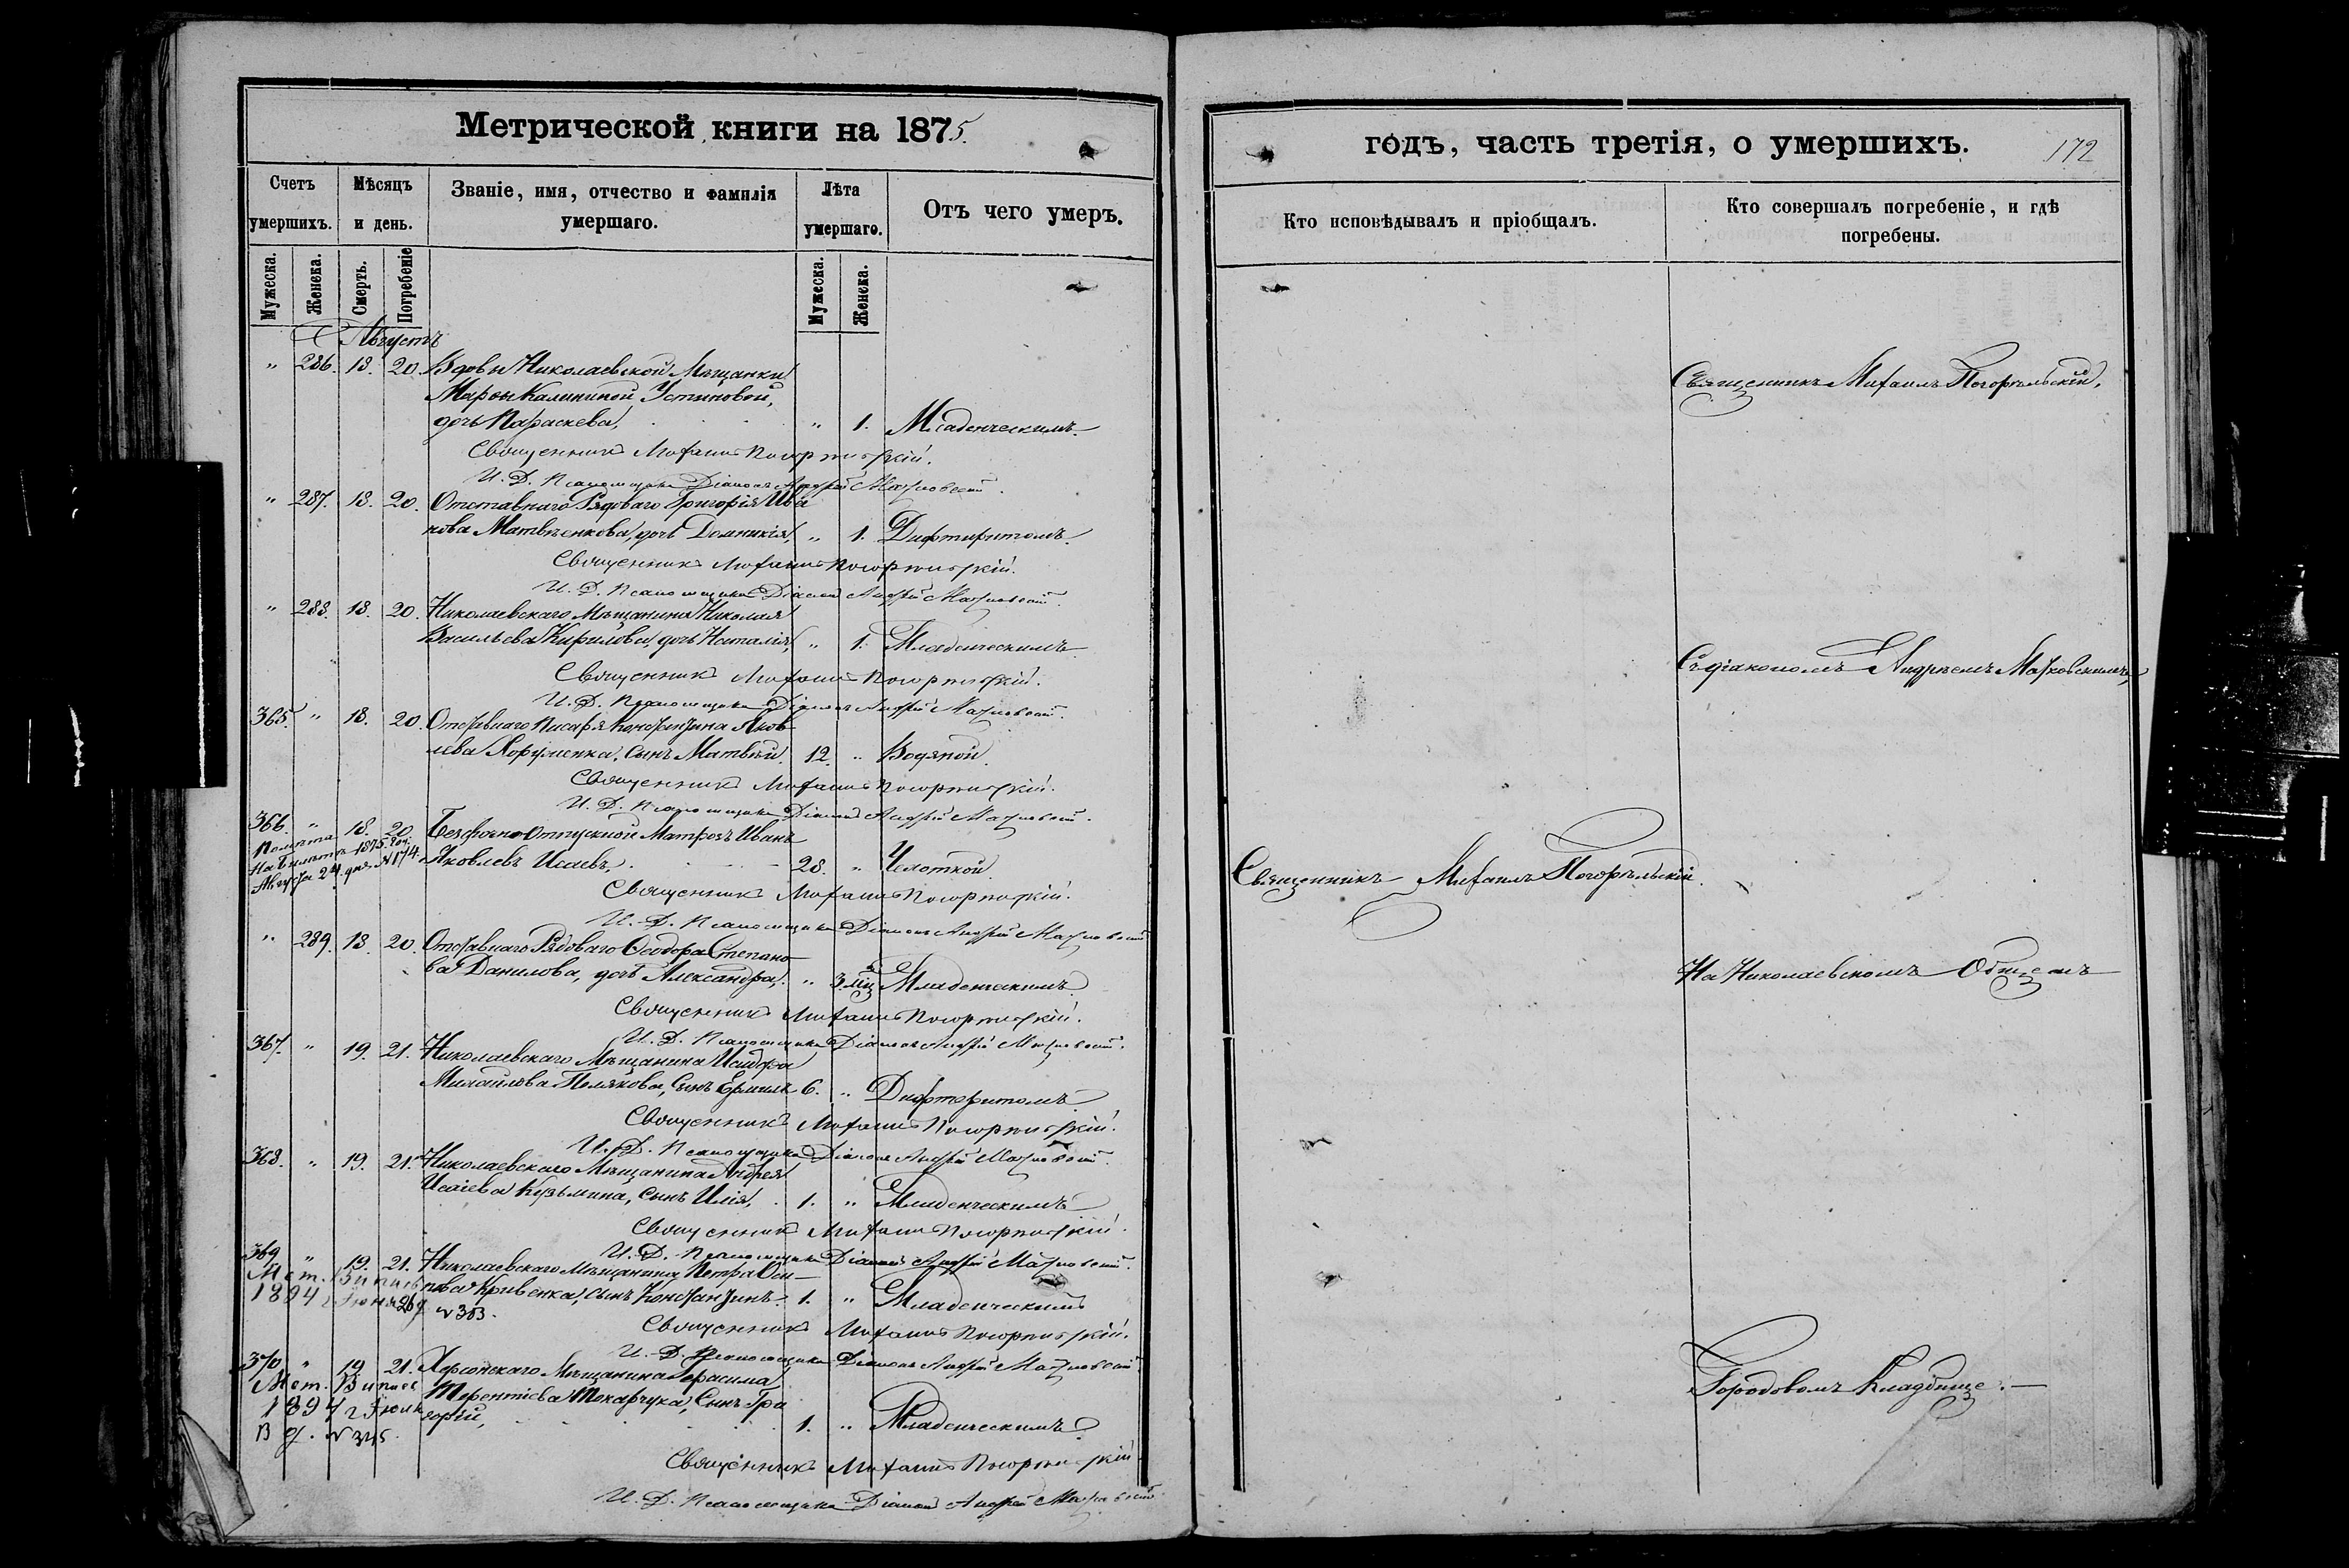 Метрической книги на 1875.
Счетъ умершихъ.
Мѣсяцъ и день.
Званіе, имя, отчество и фамилія умершаго.
Лѣта умершаго.
Отъ чего умеръ.
Мужеска.
Женска.
Смерть.
Погребеніе
Мужеска.
Женска.
Августъ
" 286. 18. 20. Вдовы Николаевской Мѣщанки
Марѳы Калининой Устиновой,
дочь Параскева, " 1. Младенческимъ.
Священникъ Михаилъ Погорѣльскій.
И. Д. Псаломщика Діаконъ Андрей Махновскій.
" 287. 18. 20. Отставнаго Рядоваго Григорія Ива
нова Матвѣенкова, дочь Домникія, " 1. Дифтиритомъ.
Священникъ Михаилъ Погорѣльскій.
И. Д. Псаломщика Діаконъ Андрей Махновскій.
" 288. 18. 20. Николаевскаго Мѣщанина Николая
Васильева Кирилова, дочь Наталія, " 1. Младенческимъ
Священникъ Михаилъ Погорѣльскій.
И. Д. Псаломщика Діаконъ Андрей Махновскій.
365. " 18. 20. Отставнаго Писаря Константина Яков
лева сынъ Матвѣй 12. " Водяной.
Священникъ Михаилъ Погорѣльскій.
И. Д. Псаломщика Діаконъ Андрей Махновскій.
366. " 18. 20. Безсрочно Отпускной Матрозъ Иванъ
Яковлевъ Исаевъ, 28. " Чахоткой.
На билетѣ 1875 год.
Августа 24 дня. N 174.
Священникъ Михаилъ Погорѣльскій.
И. Д. Псаломщика Діаконъ Андрей Махновскій
" 289. 18. 20. Отставнаго Рядоваго Ѳеодора Степано
ва Данилова, дочь Александра, " 3. мц Младенческимъ
Священникъ Михаилъ Погорѣльскій.
И. Д. Псаломщика Діаконъ Андрей Махновскій.
367. " 19. 21. Николаевскаго Мѣщанина Исидора
Михайлова Полякова, Сынъ Ермилъ 6. " Дифтеритомъ
Священникъ Михаилъ Погорѣльскій.
И. Д. Псаломщика Діаконъ Андрей Махновскій.
368. " 19. 21. Николаевскаго Мѣщанина Андрея
Исаіева Кузьмина, сынъ Илія, 1. " Младенческимъ
Священникъ Михаилъ Погорѣльскій.
И. Д. Псаломщика Діаконъ Андрей Махновскій.
369 " 19. 21. Николаевскаго Мѣщанина Петра Оси
пова Кривенка, сынъ Константинъ. 1. " Младенческимъ
Мет. Випись
1894 г Іюня 26 д N 383.
Священникъ Михаилъ Погорѣльскій.
И. Д. Псаломщика Діаконъ Андрей Махновскій
370 " 19 21. Херсонскаго Мѣщанина Герасима
Терентіева Токарчука, Сынъ Гри
горій, 1. " Младенческимъ
Мет. Випись
1897 г Іюля
8 д. N 345.
Священникъ Михаилъ Погорѣльскій
И. Д. Псаломщика Діаконъ Андрей Махновскій
годъ, часть третія, о умершихъ.
172
Кто исповѣдывалъ и пріобщалъ.
Кто совершалъ погребеніе, и гдѣ погребены.
Священникъ Михаилъ Погорѣльскій,
Съ діакономъ Андреемъ Махновскимъ,
Священникъ Михаилъ Погорѣльскій.
На Николаевскомъ Общемъ
Городовомъ Кладбище.